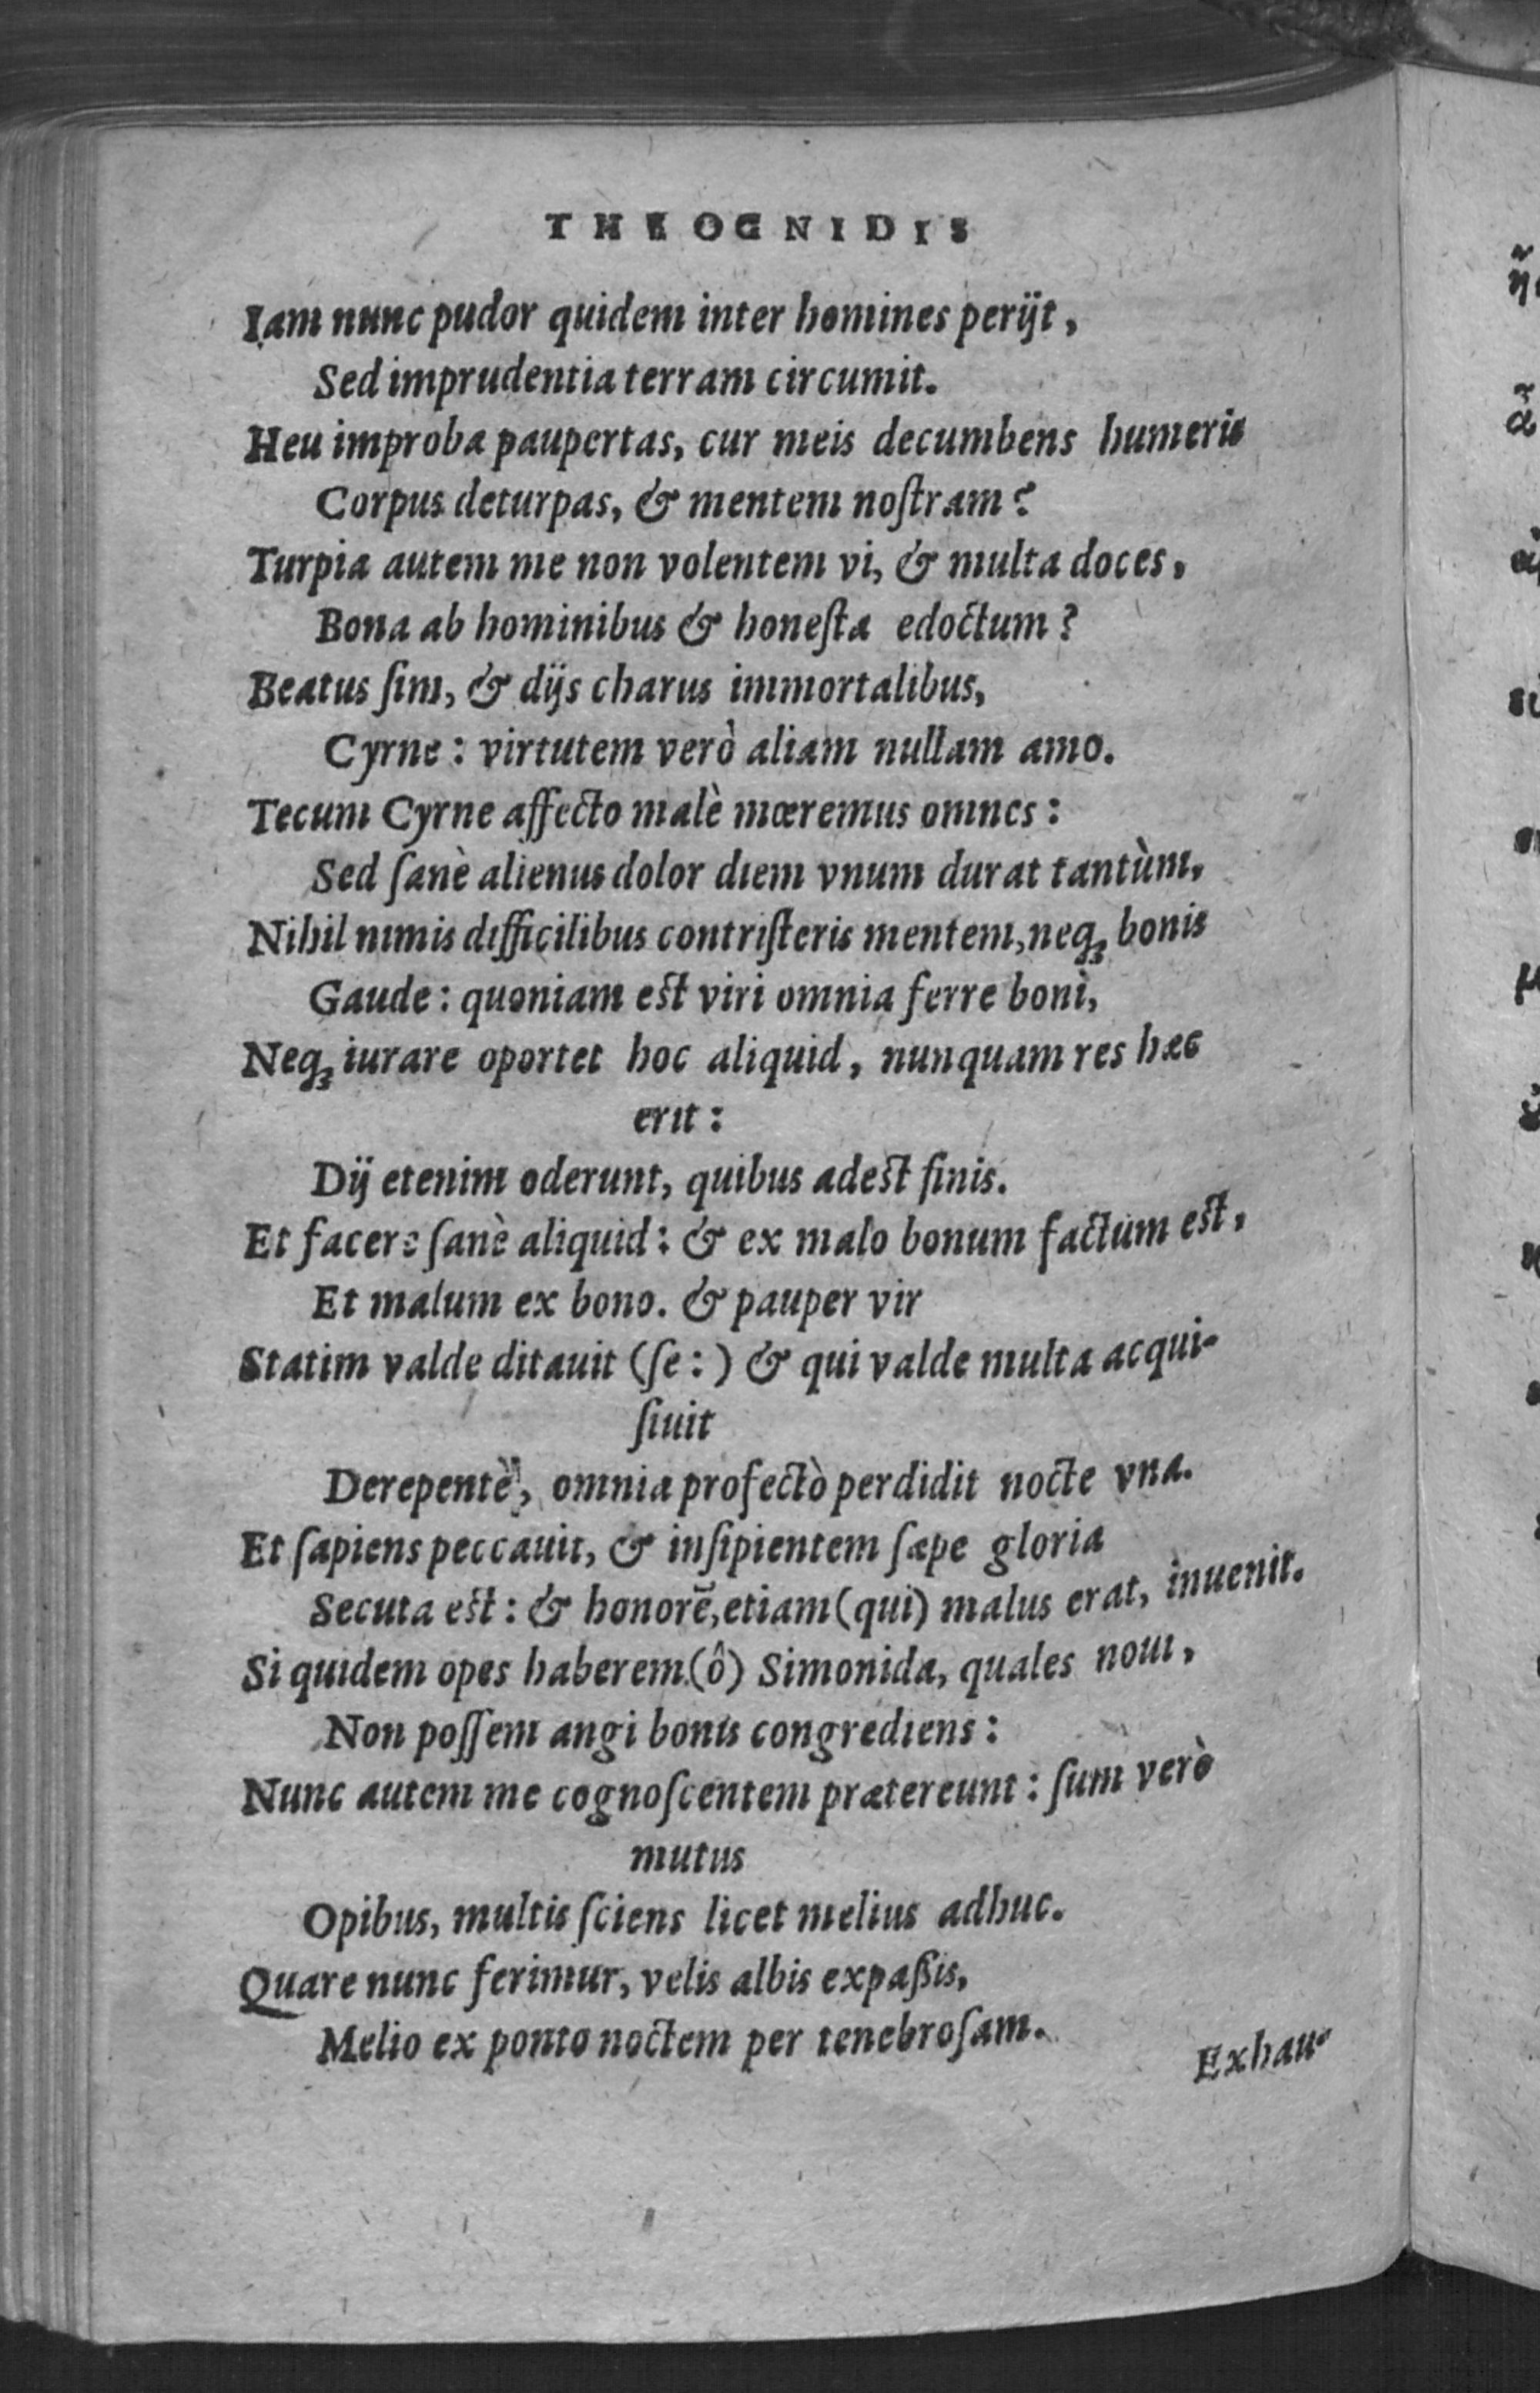 THEOGNIDIS
Iam nunc pudor quidem inter homines perijt,
Sed imprudentia terram circumit.
Heu improba paupertas, cur meis decumbens humeris
Corpus deturpas, & mentem noſtram?
Turpia autem me non volentem vi, & multa doces,
Bona ab hominibus & honeſta edoctum?
Beatus ſim, & dijs charus immortalibus,
Cyrne: virtutem verò aliam nullam amo.
Tecum Cyrne affecto malè mœremus omnes:
Sed ſanè alienus dolor diem vnum durat tantùm.
Nihil nimis difficilibus contriſteris mentem, neq; bonis
Gaude: quoniam est viri omnia ferre boni,
Neq; iurare oportet hoc aliquid, nunquam res hæc
erit:
Dij etenim oderunt, quibus adest finis.
Et facere ſanè aliquid: & ex malo bonum factum est,
Et malum ex bono. & pauper vir
Statim valde ditauit (ſe:) & qui valde multa acqui-
ſiuit
Derepentè, omnia profectò perdidit nocte vna.
Et ſapiens peccauit, & inſipientem ſæpe gloria
Secuta est: & honorē, etiam (qui) malus erat, inuenit.
Si quidem opes haberem (ô) Simonida, quales noui,
Non poſſem angi bonis congrediens:
Nunc autem me cognoſcentem prætereunt: ſum verò
mutus
Opibus, multis ſciens licet melius adhuc.
Quare nunc ferimur, velis albis expaßis,
Melio ex ponto noctem per tenebroſam.
Exhau-